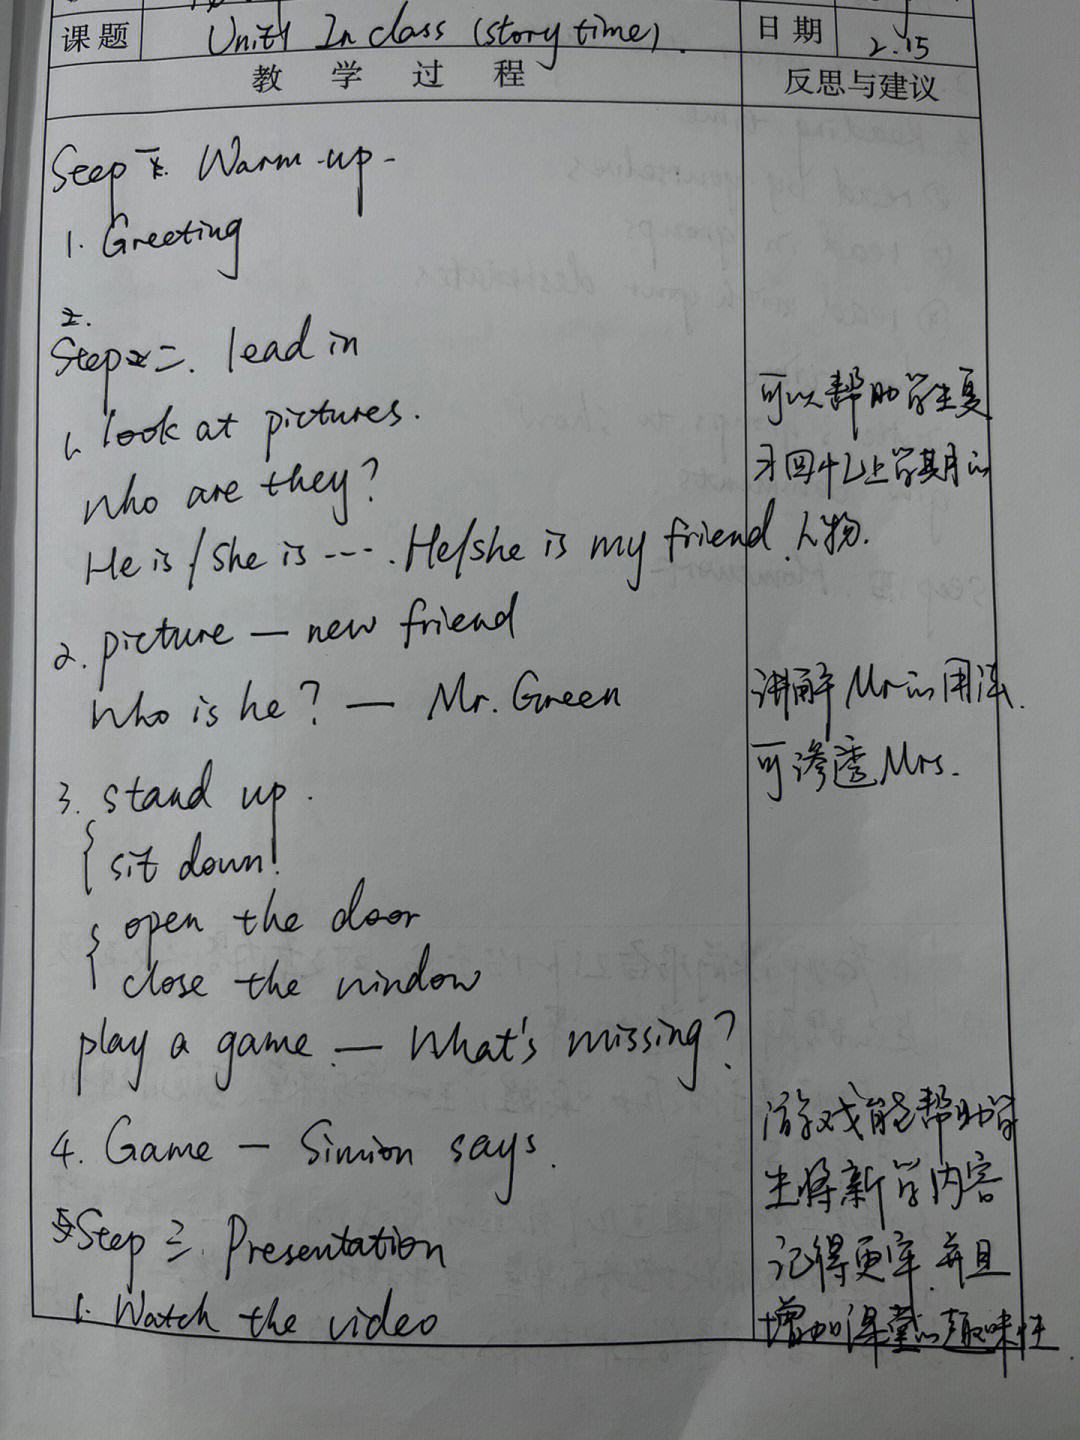 课题 Unit1 In class (story time). 日期 2.15
教学过程 反思与建议
Step 一. Warm-up-
1. Greeting
2.
Step 二. lead in
1. look at pictures.
可以帮助学生复
who are they?
习回忆上学期的
He is / She is ---. He/she is my friend.
人物.
2. picture — new friend
who is he? — Mr. Green
讲解Mr的用法.
可渗透Mrs.
3. stand up.
sit down!
open the door
close the window
play a game — What's missing?
4. Game — Simion says.
游戏能帮助学
生将新学内容
Step 三. Presentation
记得更牢,并且
1. Watch the video
增加课堂的趣味性.